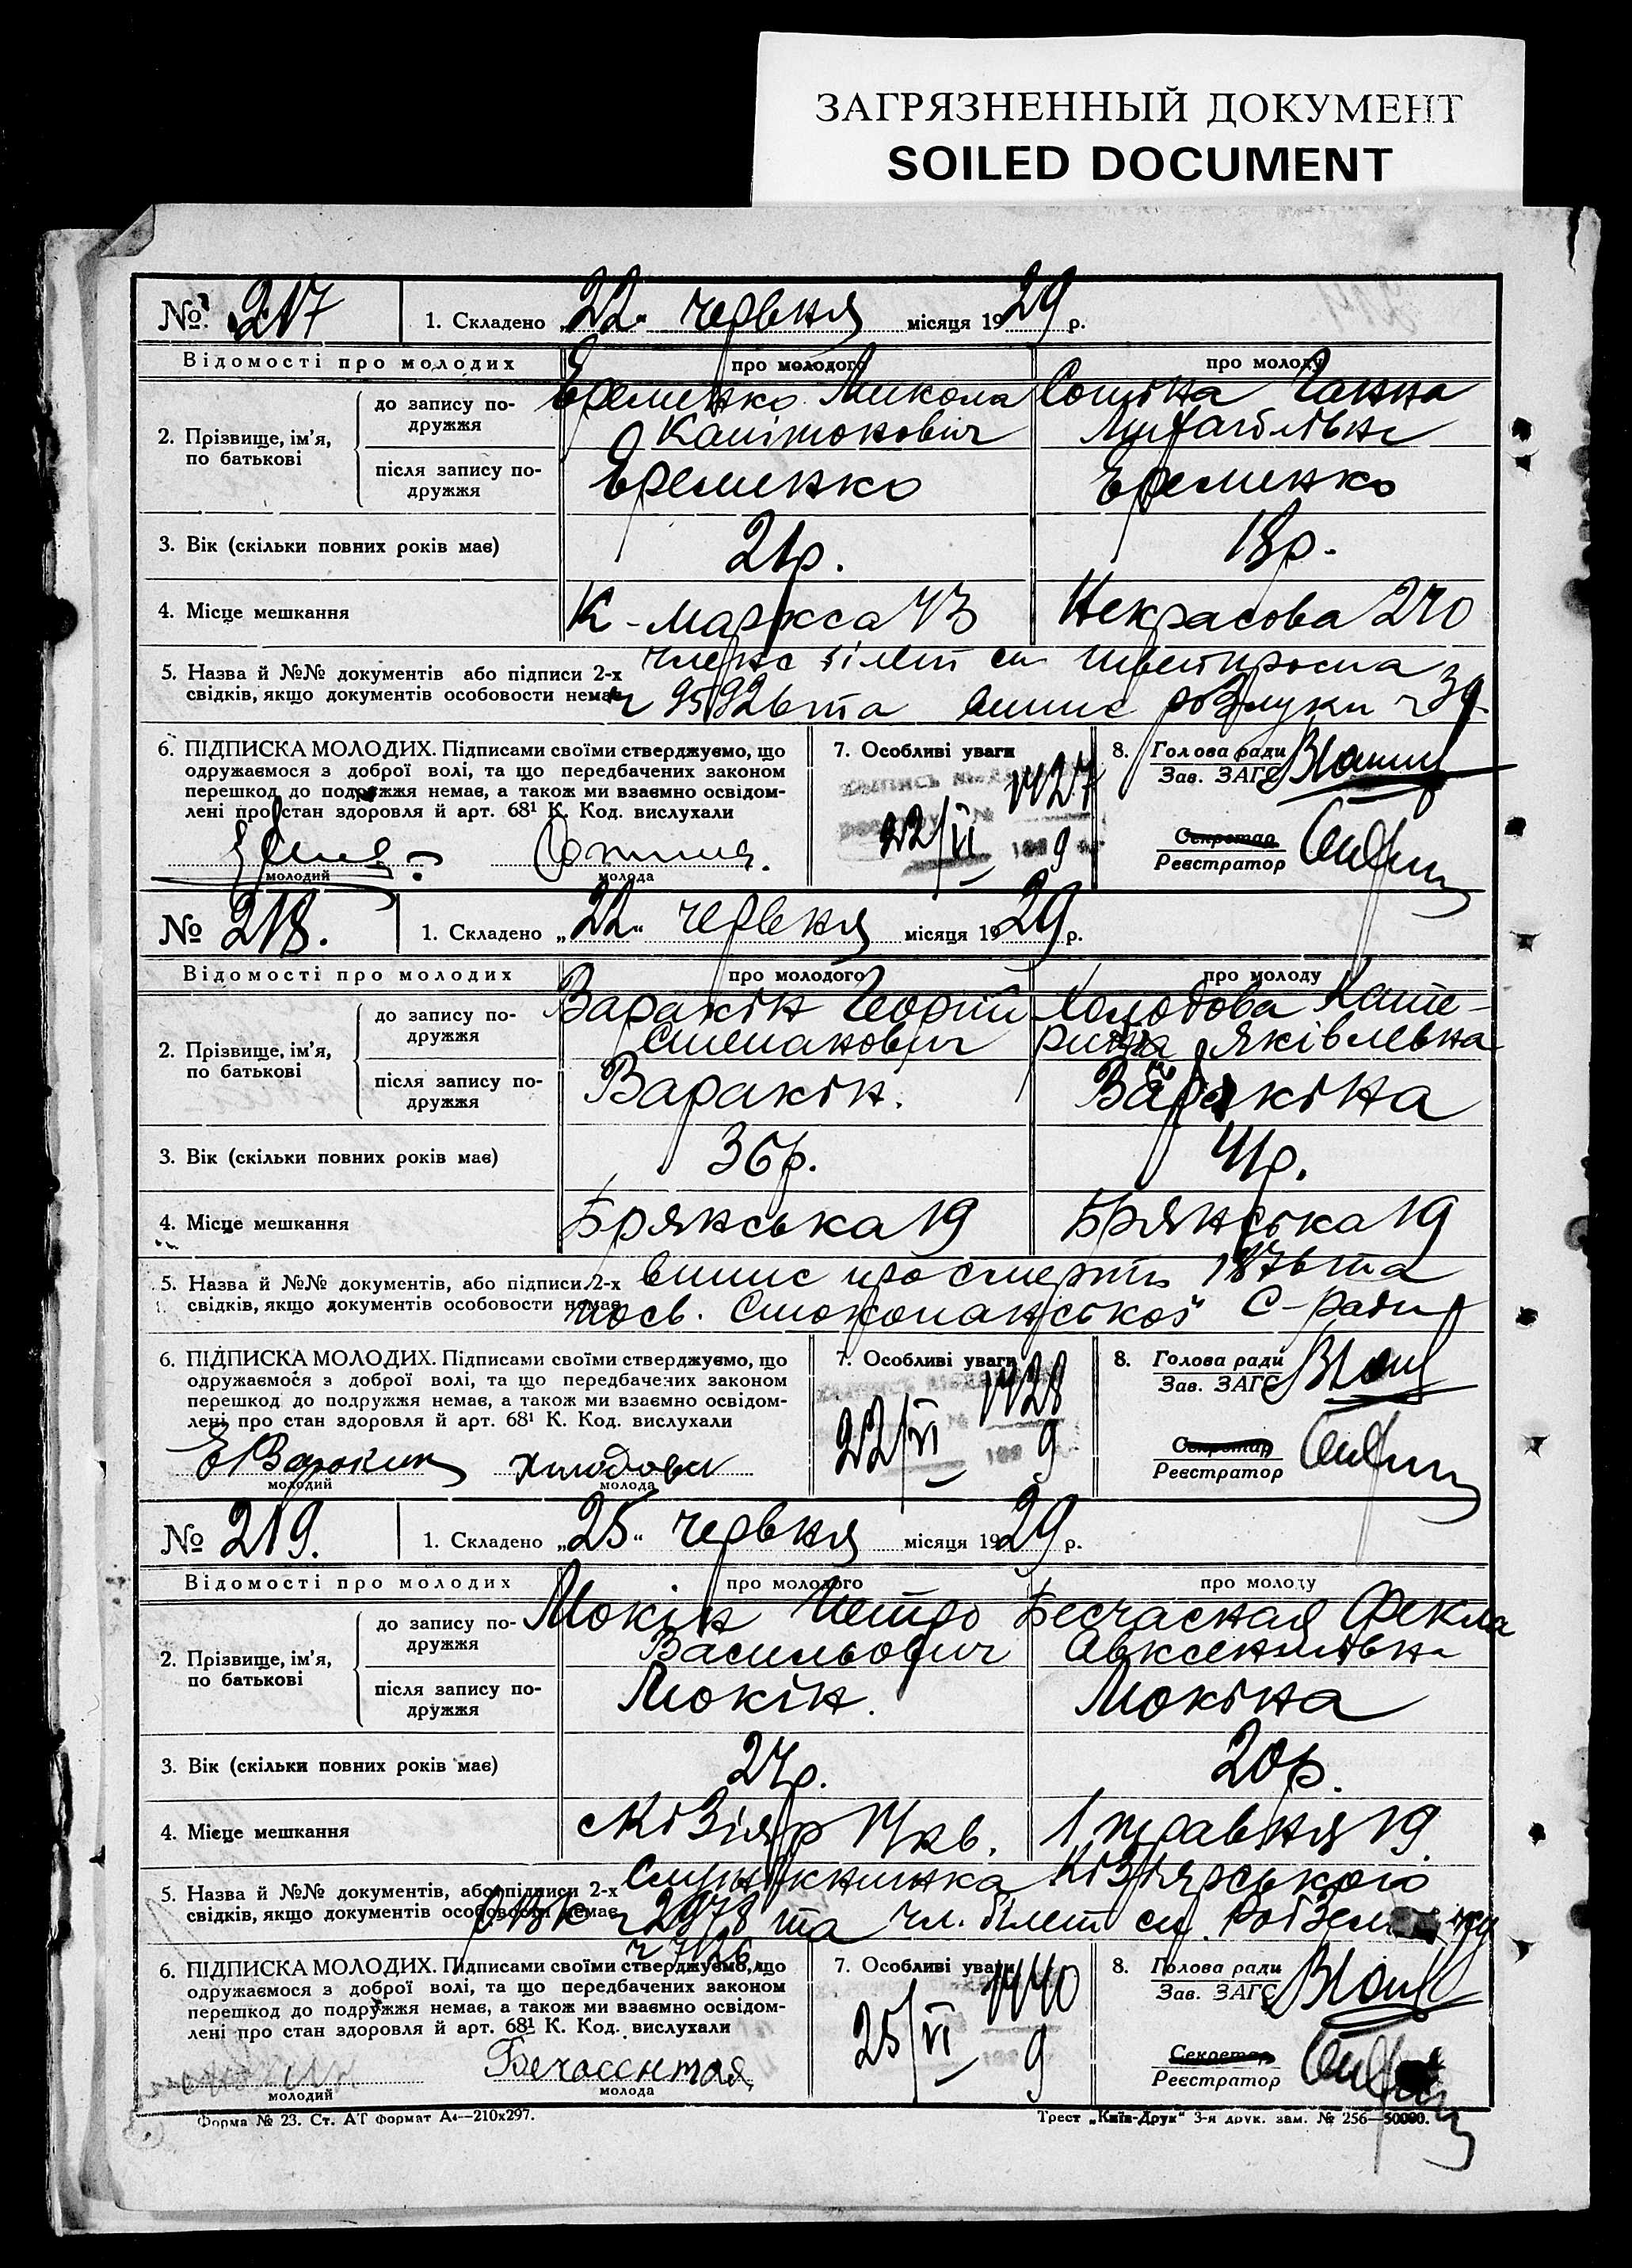 ЗАГРЯЗНЕННЫЙ ДОКУМЕНТ
SOILED DOCUMENT
№ 217 1. Складено „22“ червня місяця 1929 р.
Відомості про молодих про молодого про молоду
2. Прізвище, ім’я, по батькові
до запису подружжя
Еременко Микола
Капітонович
Ганна
Михайлівна
після запису подружжя
Еременко Еременко
3. Вік (скільки повних років має) 21р. 18р.
4. Місце мешкання К-Маркса 43 Некрасова 240
5. Назва й №№ документів або підписи 2-х
свідків, якщо документів особовости немає
членс білет
та випис розлуки ч 39
6. ПІДПИСКА МОЛОДИХ. Підписами своїми стверджуємо, що
одружаємося з доброї волі, та що передбачених законом
перешкод до подружжя немає, а також ми взаємно освідом-
лені про стан здоровля й арт. 68¹ К. Код. вислухали
молодий молода
7. Особливі уваги
1427
22/VI 9
8. Голова ради
Зав. ЗАГС
Секретар
Реєстратор
№ 218. 1. Складено „22“ червня місяця 1929 р.
Відомості про молодих про молодого про молоду
2. Прізвище, ім’я, по батькові
до запису подружжя
Варакін Георгій
Степанович
Холодова Кате-
рина Яківлевна
після запису подружжя
Варакін. Варакіна
3. Вік (скільки повних років має) 36р. 41р.
4. Місце мешкання Брянська 19 Брянська 19
5. Назва й №№ документів, або підписи 2-х
свідків, якщо документів особовости немає
випис про смерть 187 та
посв. С-ради
6. ПІДПИСКА МОЛОДИХ. Підписами своїми стверджуємо, що
одружаємося з доброї волі, та що передбачених законом
перешкод до подружжя немає, а також ми взаємно освідом-
лені про стан здоровля й арт. 68¹ К. Код. вислухали
Варакин Холодова
молодий молода
7. Особливі уваги
1428
22/VI 9
8. Голова ради
Зав. ЗАГС
Секретар
Реєстратор
№ 219. 1. Складено „25“ червня місяця 1929 р.
Відомості про молодих про молодого про молоду
2. Прізвище, ім’я, по батькові
до запису подружжя
Мокін Петро
Васильович
Бесчасная Фекла
Авксентівна
після запису подружжя
Мокін. Мокіна
3. Вік (скільки повних років має) 24р. 20р.
4. Місце мешкання с Кізіяр 14кв. 1 травня 19
5. Назва й №№ документів, або підписи 2-х
свідків, якщо документів особовости немає
книжка Кізіярського
РВК ч 2978 та чл. білет сп.
ч 7/26
6. ПІДПИСКА МОЛОДИХ. Підписами своїми стверджуємо, що
одружаємося з доброї волі, та що передбачених законом
перешкод до подружжя немає, а також ми взаємно освідом-
лені про стан здоровля й арт. 68¹ К. Код. вислухали
молодий молода
7. Особливі уваги
1440
25/VI 9
8. Голова ради
Зав. ЗАГС
Секретар
Реєстратор
Форма № 23. Ст. АТ формат А4—210х297.
Трест „Київ-Друк“ 3-я друк. зам. № 256—50000.